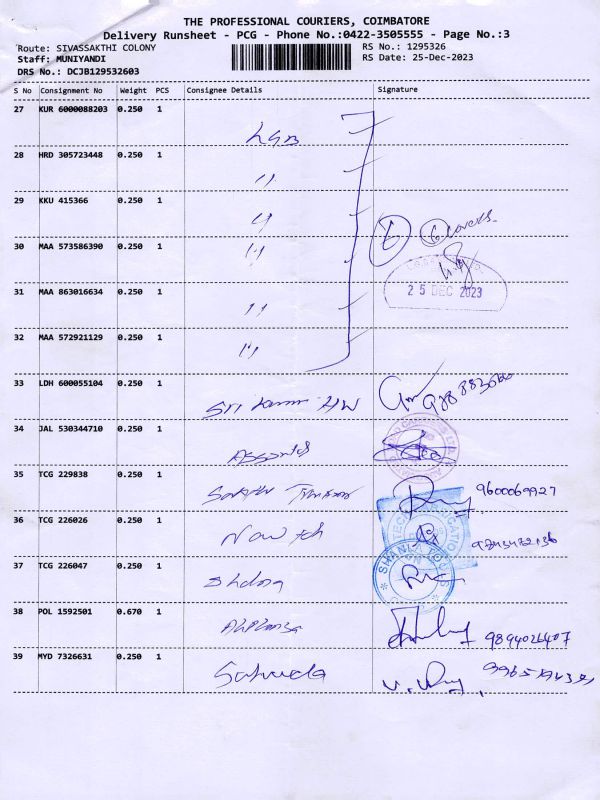 THE PROFESSIONAL COURIERS, COIMBATORE
Delivery Runsheet - PCG - Phone No.:0422-3505555 - Page No.:3
Route: SIVASSAKTHI COLONY RS No.: 1295326
Staff: MUNIYANDI RS Date: 25-Dec-2023
DRS No.: DCJB129532603
S No Consignment No Weight PCS Consignee Details Signature
27 KUR 6000088203 0.250 1 LGB
28 HRD 305723448 0.250 1 11
29 KKU 415366 0.250 1 11
6 6 Covers.
30 MAA 573586390 0.250 1 11
25 DEC 2023
31 MAA 863016634 0.250 1 11
32 MAA 572921129 0.250 1 11
33 LDH 600055104 0.250 1 Sri HW
34 JAL 530344710 0.250 1
35 TCG 229838 0.250 1 9600069927
36 TCG 226026 0.250 1
37 TCG 226047 0.250 1 Sharda
38 POL 1592501 0.670 1 9894026407
39 MYD 7326631 0.250 1